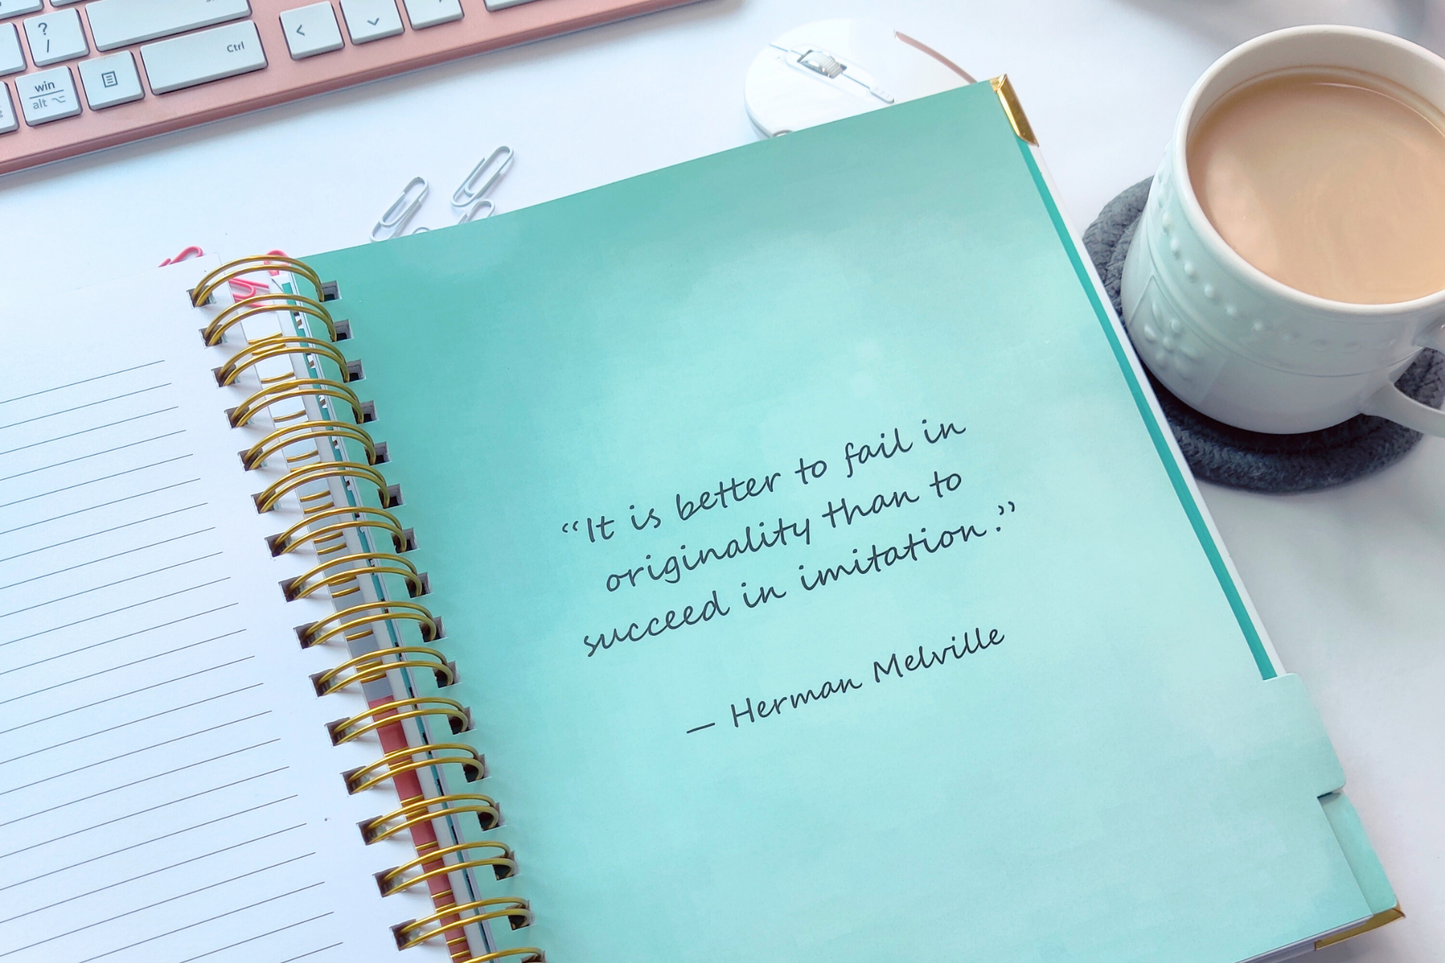 ?
/
Ctrl
<
win
alt
“It is better to fail in
originality than to
succeed in imitation.”
— Herman Melville